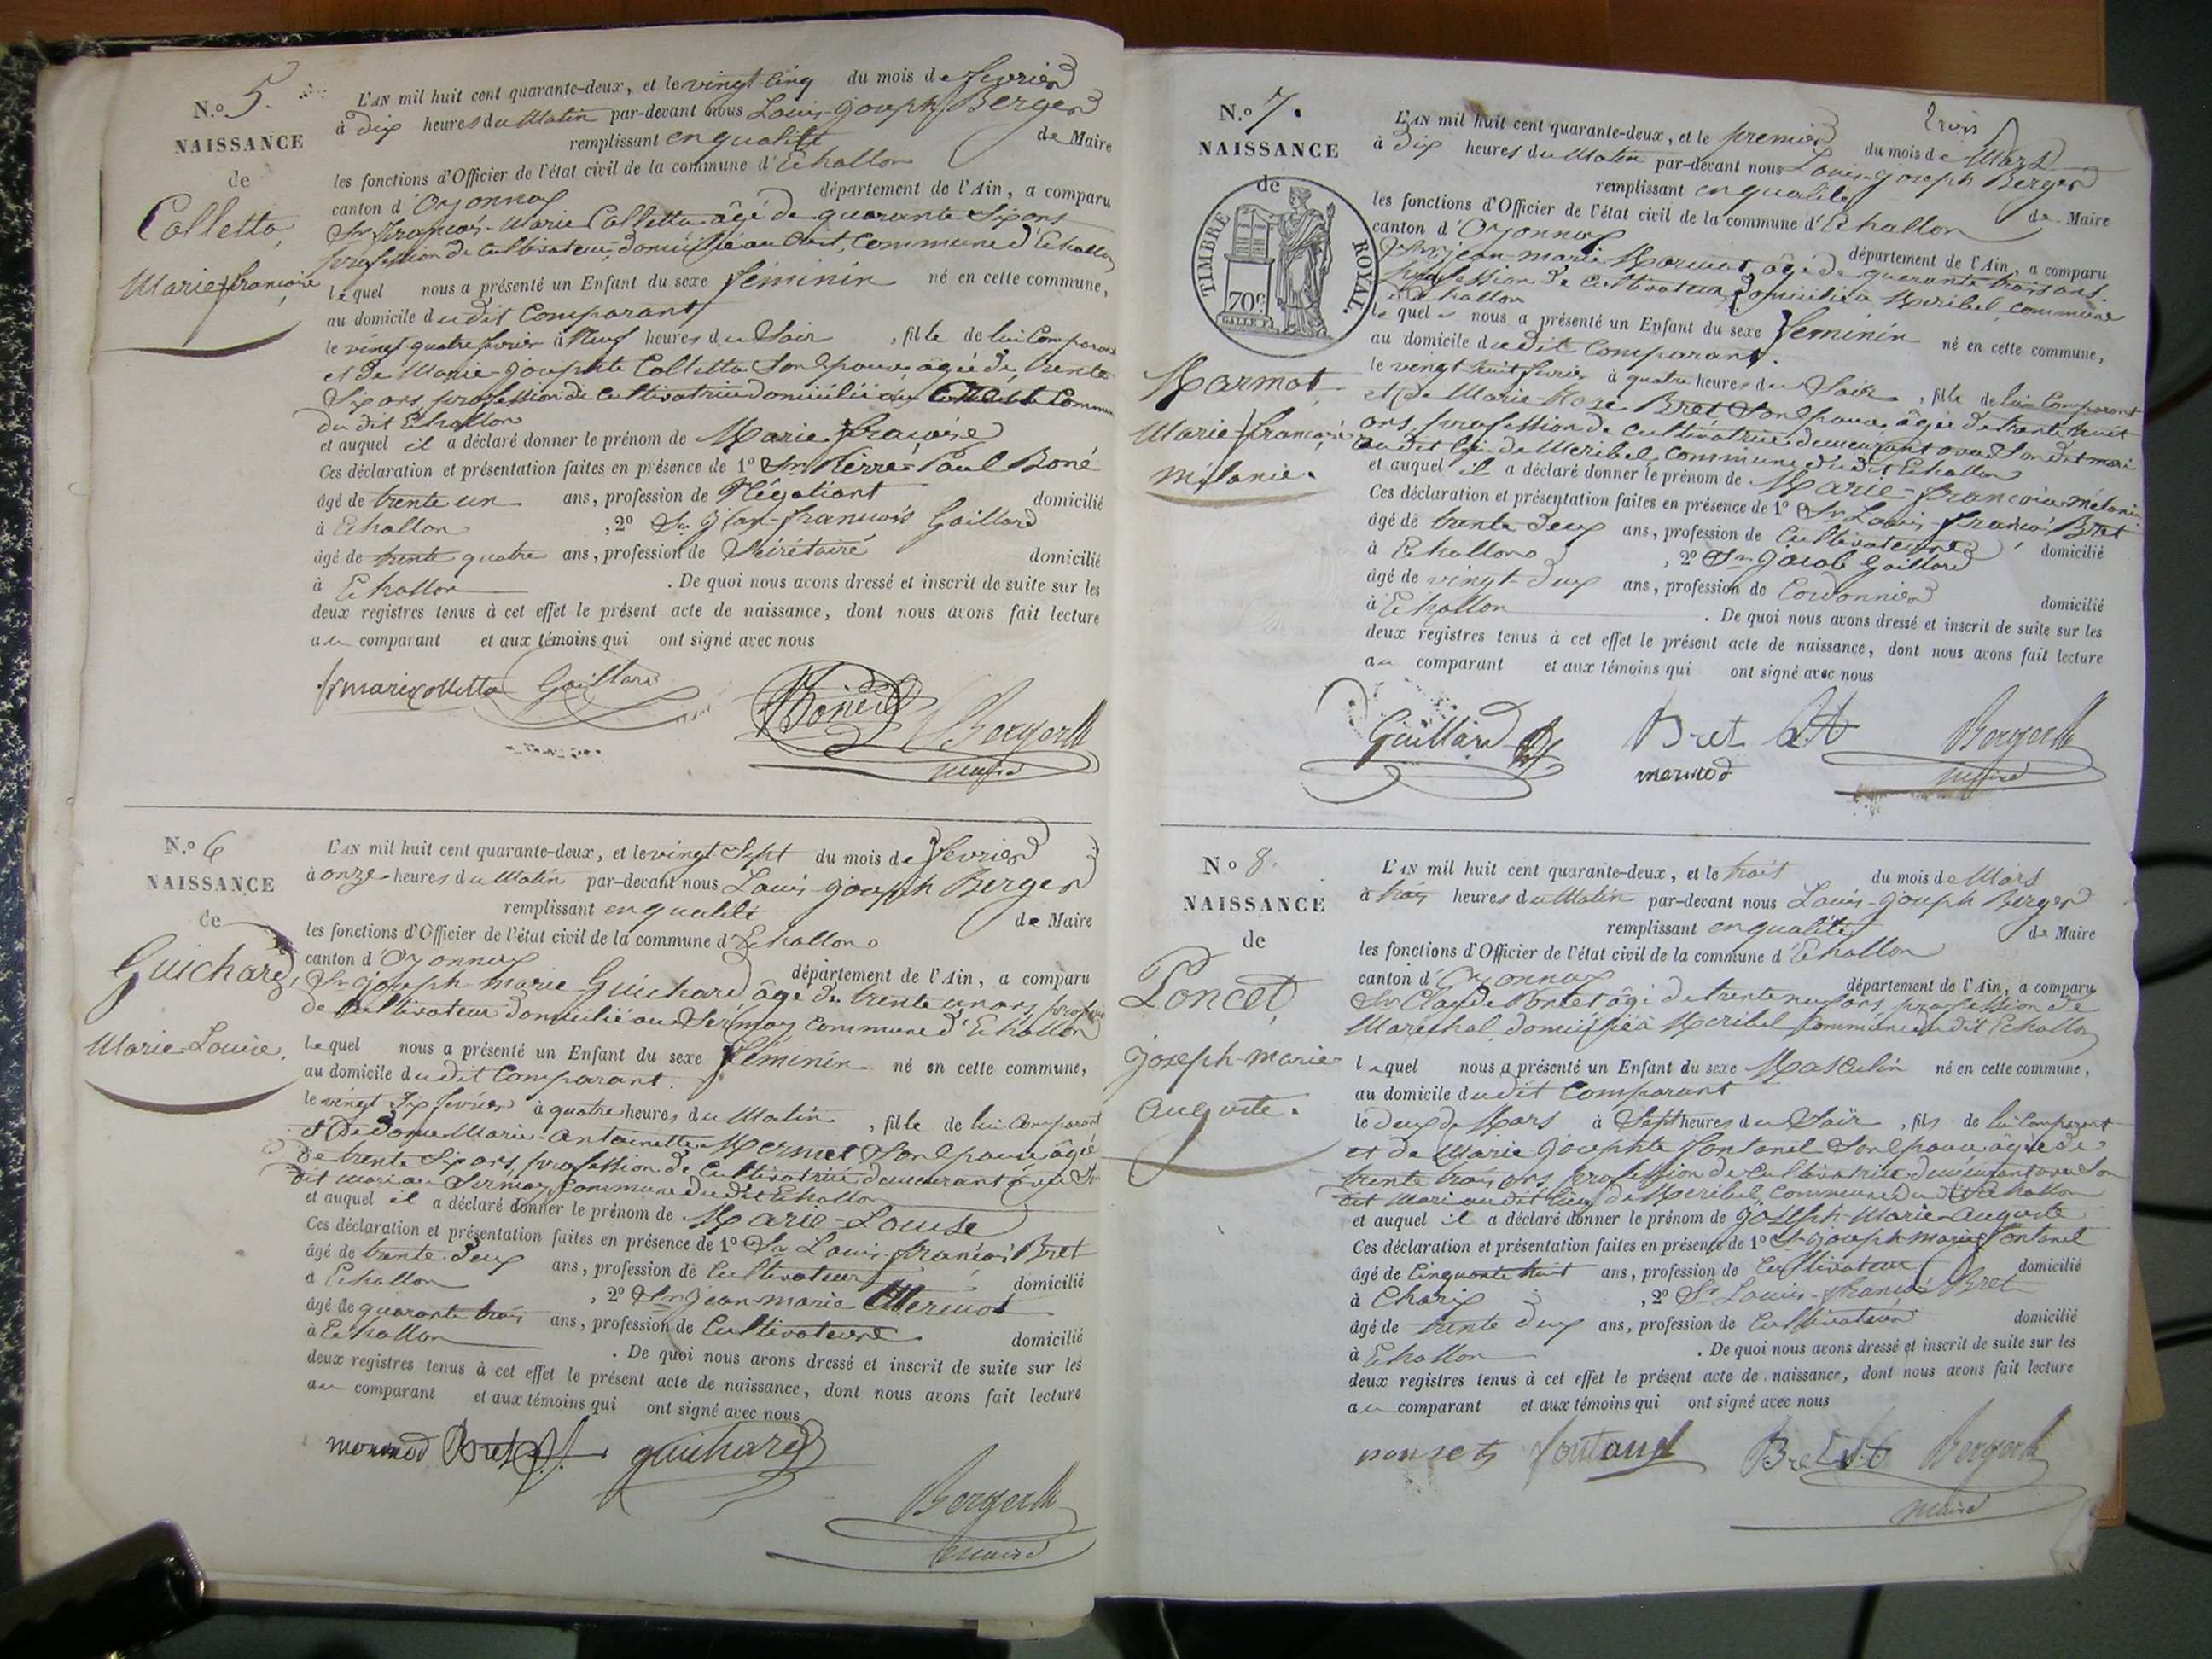 N.º 5.
NAISSANCE
de
Colletta,
Marie françoise
L'AN mil huit cent quarante-deux, et le vingt-cinq du mois de fevrier
à dix heures du Matin par-devant nous Louis-Joseph Berger
remplissant en qualité de Maire
les fonctions d'Officier de l'état civil de la commune d'Echallon
canton d'Oyonnax département de l'Ain, a comparu
Sr françois-Marie Colletta âgé de quarante Six ans
profession de Cultivateur, domicilié au Crêt, Commune d'Echallon
lequel nous a présenté un Enfant du sexe féminin né en cette commune,
au domicile dudit Comparant
le vingt quatre fevrier à Neuf heures du Soir, fille de lui Comparant
et de Marie-Josephte Colletta Son Epouse âgée de trente
Six ans, profession de Cultivatrice domiciliée au Commune
du dit Echallon
et auquel il a déclaré donner le prénom de Marie françoise
Ces déclaration et présentation faites en présence de 1º Sr Pierre-Paul Boné
âgé de trente un ans, profession de Négotiant domicilié
à Echallon, 2º Sr Jean-francois Gaillard
âgé de trente quatre ans, profession de Sécrétaire domicilié
à Echallon. De quoi nous avons dressé et inscrit de suite sur les
deux registres tenus à cet effet le présent acte de naissance, dont nous avons fait lecture
au comparant et aux témoins qui ont signé avec nous
fr marie colletta Gaillard Boné Berger
maire
N.º 6
NAISSANCE
de
Guichard,
Marie-Louise.
L'AN mil huit cent quarante-deux, et le vingt Sept du mois de fevrier
à onze heures du Matin par-devant nous Louis-Joseph Berger
remplissant en qualité de Maire
les fonctions d'Officier de l'état civil de la commune d'Echallon
canton d'Oyonnax département de l'Ain, a comparu
Sr Joseph Marie Guichard âgé de trente un ans, profession
de Cultivateur domicilié au Sermoy Commune d'Echallon
lequel nous a présenté un Enfant du sexe féminin né en cette commune,
au domicile dudit Comparant.
le vingt Six fevrier à quatre heures du Matin, fille de lui Comparant
et De Dame Marie-Antoinette Mermet Son Epouse âgée
de trente Six ans, profession de Cultivatrice demeurant avec Son
dit mari au Sermoy, Commune dudit Echallon
et auquel il a déclaré donner le prénom de Marie-Louise
Ces déclaration et présentation faites en présence de 1º Sr Louis-françois Bret
âgé de trente Deux ans, profession de Cultivateur domicilié
à Echallon, 2º Sr Jean-marie Mermot
âgé de quarante trois ans, profession de Cultivateur domicilié
à Echallon. De quoi nous avons dressé et inscrit de suite sur les
deux registres tenus à cet effet le présent acte de naissance, dont nous avons fait lecture
au comparant et aux témoins qui ont signé avec nous
mermod Bret guichard
Berger
maire
trois
N.º 7.
NAISSANCE
de
TIMBRE ROYAL
70c
Marmot,
Marie françoise
Mélanie.
L'AN mil huit cent quarante-deux, et le premier du mois de Mars
à Dix heures du Matin par-devant nous Louis-Joseph Berger
remplissant en qualité de Maire
les fonctions d'Officier de l'état civil de la commune d'Echallon
canton d'Oyonnax département de l'Ain, a comparu
Sr jean-marie Marmot, âgé de quarante trois ans,
profession de Cultivateur, Domicilié à Meribel, commune
d'Echallon
lequel nous a présenté un Enfant du sexe féminin né en cette commune,
au domicile dudit Comparant.
le vingt huit fevrier à quatre heures du Soir, fille de lui Comparant
et de Marie-Rose Bret Son Epouse âgée de trente huit
ans, profession de Cultivatrice demeurant avec Son dit mari
audit lieu de Meribel, Commune dudit Echallon
et auquel il a déclaré donner le prénom de Marie-françoise mélanie
Ces déclaration et présentation faites en présence de 1º Sr Louis-françois Bret
âgé de trente Deux ans, profession de Cultivateur domicilié
à Echallon, 2º Sr Jacob Gaillard
âgé de vingt-Deux ans, profession de Cordonnier domicilié
à Echallon. De quoi nous avons dressé et inscrit de suite sur les
deux registres tenus à cet effet le présent acte de naissance, dont nous avons fait lecture
au comparant et aux témoins qui ont signé avec nous
Gaillard Bret Berger
mermod maire
Nº 8.
NAISSANCE
de
Poncet,
Joseph-marie
Auguste.
L'AN mil huit cent quarante-deux, et le trois du mois de Mars
à trois heures du Matin par-devant nous Louis-Joseph Berger
remplissant en qualité de Maire
les fonctions d'Officier de l'état civil de la commune d'Echallon
canton d'Oyonnax département de l'Ain, a comparu
Sr Claude Poncet âgé de trente neuf ans, profession de
Marechal, domicilié à Meribel, Commune dudit Echallon
lequel nous a présenté un Enfant du sexe Masculin né en cette commune,
au domicile dudit Comparant
le deux de Mars à Sept heures du Soir, fils de lui Comparant
et de Marie Josephte fontanel Son Epouse âgée de
trente trois ans, profession de Cultivatrice demeurant avec Son
dit Mari au dit lieu de Meribel, Commune du dit Echallon
et auquel il a déclaré donner le prénom de Joseph-Marie-Auguste
Ces déclaration et présentation faites en présence de 1º Sr Joseph marie fontanel
âgé de Cinquante huit ans, profession de Cultivateur domicilié
à Charix, 2º Sr Louis-françois Bret
âgé de trente deux ans, profession de Cultivateur domicilié
à Echallon. De quoi nous avons dressé et inscrit de suite sur les
deux registres tenus à cet effet le présent acte de naissance, dont nous avons fait lecture
au comparant et aux témoins qui ont signé avec nous
ponsets fontanel Bret Berger
maire